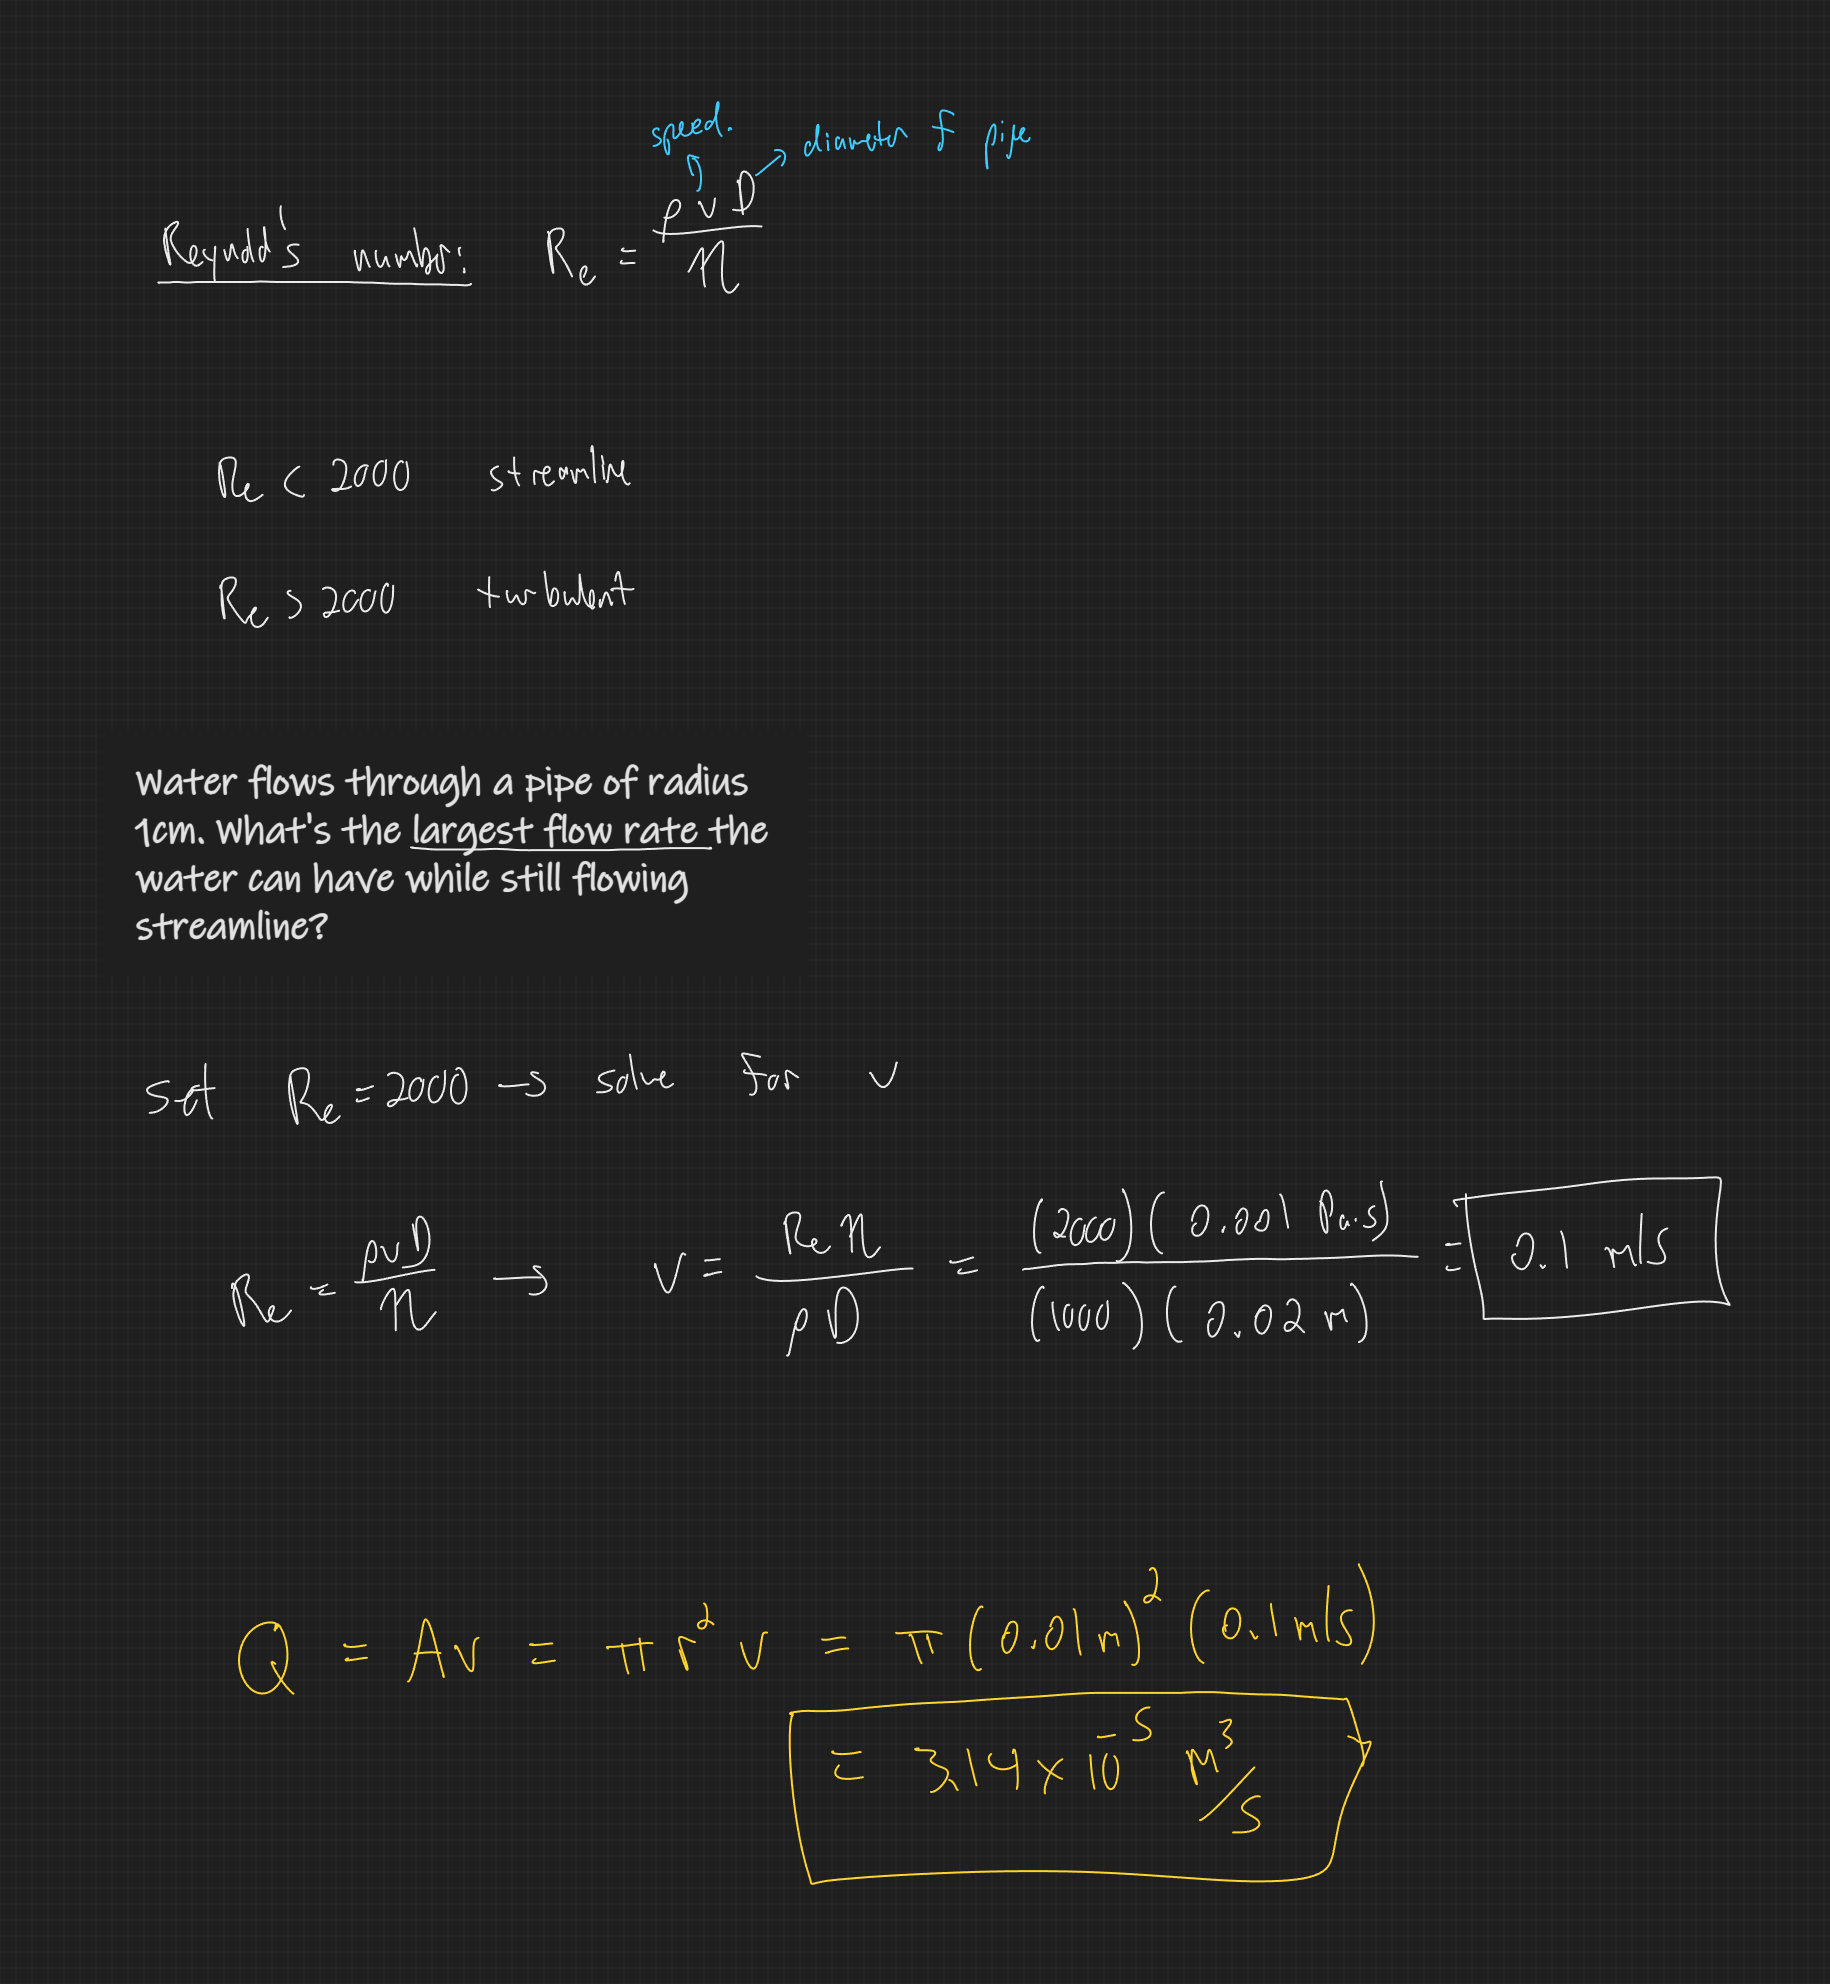 speed.
diameter of pipe
Reynold's number: Re = ρvD/η
Re < 2000 streamline
Re > 2000 turbulent
Water flows through a pipe of radius
1cm. What's the largest flow rate the
water can have while still flowing
streamline?
Set Re = 2000 → solve for v
Re = ρvD/η → v = Re η/ρD = (2000)(0.001 Pa·s)/(1000)(0.02 m) = 0.1 m/s
Q = Av = πr² v = π(0.01m)² (0.1m/s)
= 3.14 × 10⁻⁵ m³/s